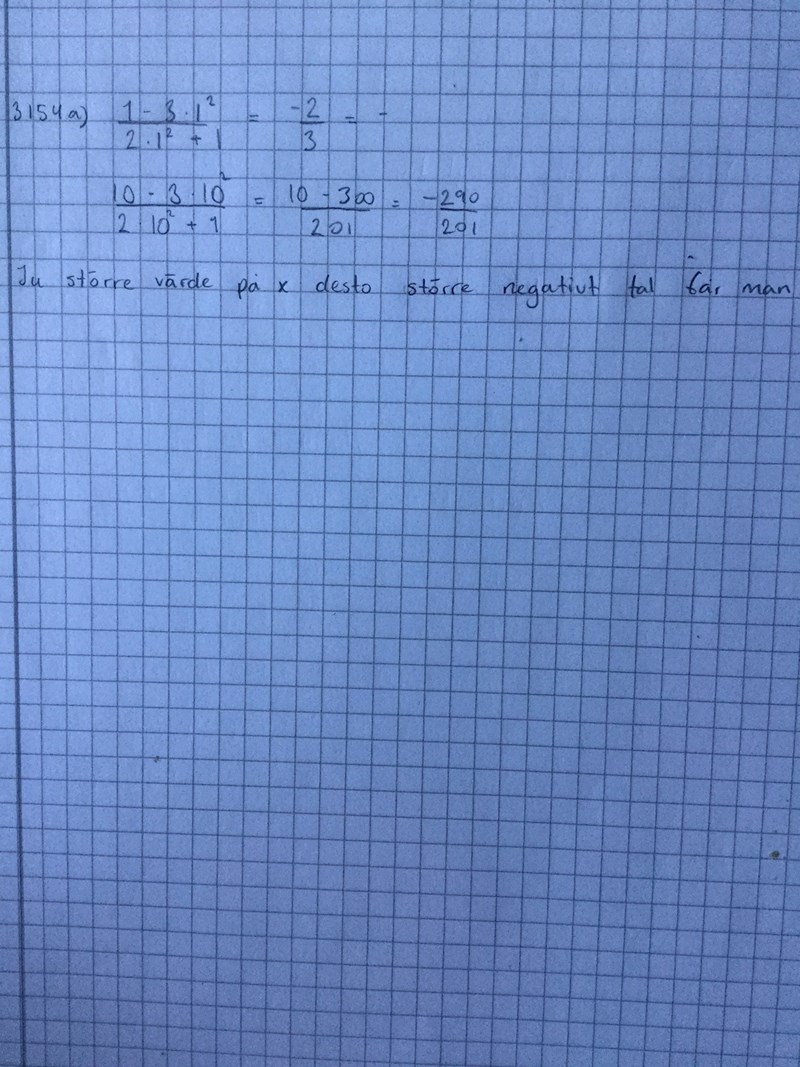 3154a) 1 - 3 · 1² / 2 · 1² + 1 = -2 / 3 = -
10 - 3 · 10² / 2 · 10² + 1 = 10 - 300 / 201 = -290 / 201
Ju större värde på x desto större negativt tal får man